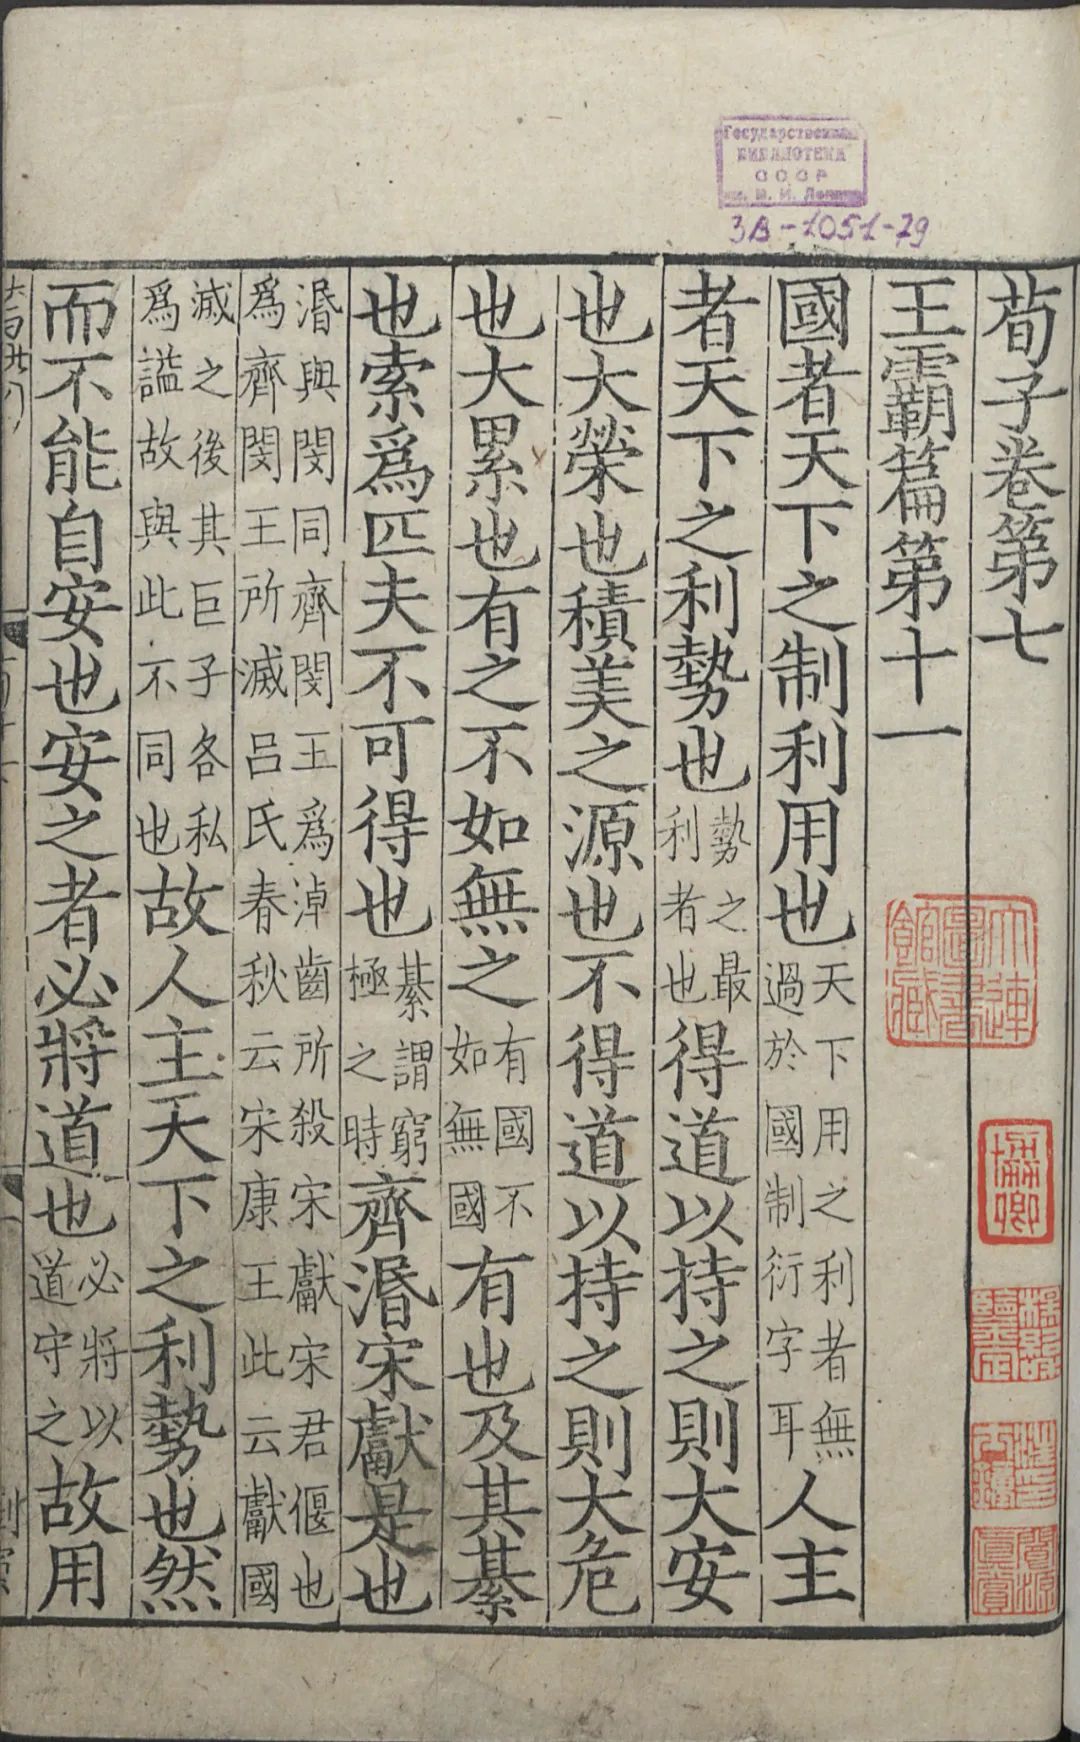 Государственная
БИБЛИОТЕКА
СССР
им. В. И. Ленина
3В-1051-79
荀子卷第七
王霸篇第十一
國者天下之制利用也天下用之利者無過於國制衍字耳人主
者天下之利勢也勢之最利者也得道以持之則大安
也大榮也積美之源也不得道以持之則大危
也大累也有之不如無之有國不如無國有也及其綦
也索爲匹夫不可得也綦謂窮極之時齊湣宋獻是也
湣與閔同齊閔王爲淖齒所殺宋獻宋君偃也爲齊閔王所滅呂氏春秋云宋康王此云獻國
滅之後其巨子各私爲謚故與此不同也故人主天下之利勢也然
而不能自安也安之者必將道也必將以道守之故用
大連圖書館藏